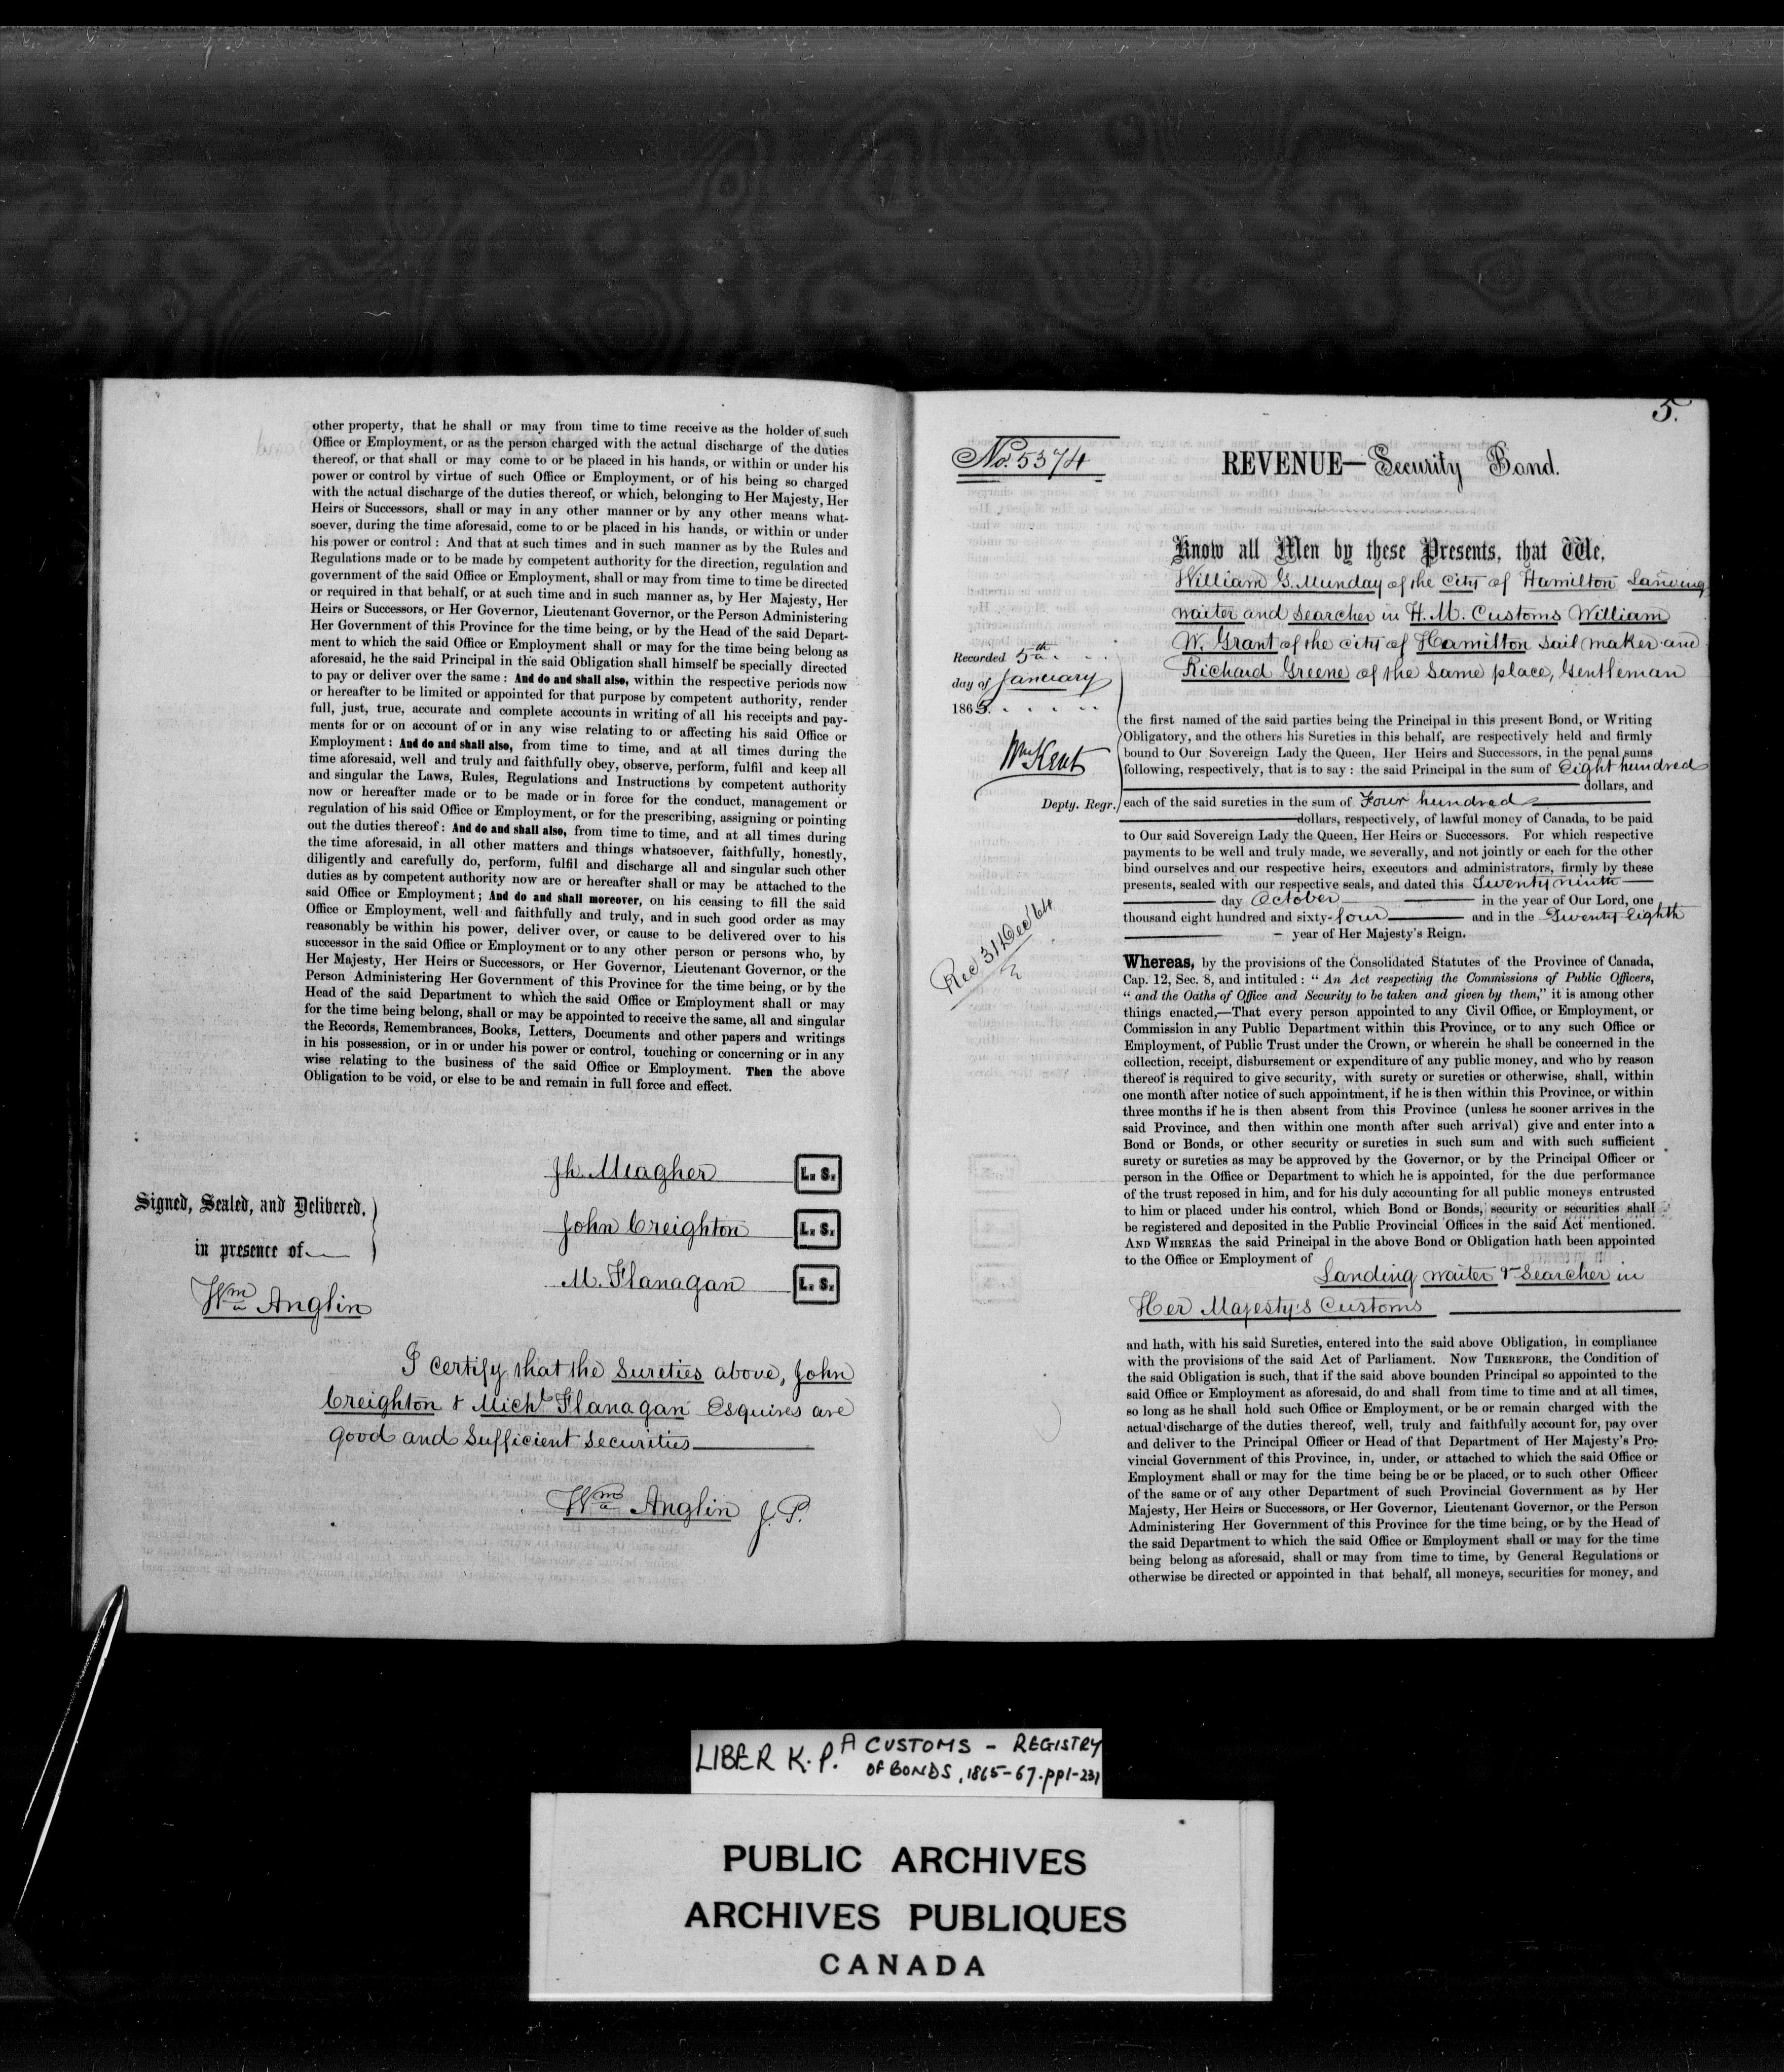 other property, that he shall or may from time to time receive as the holder of such
Office or Employment, or as the person charged with the actual discharge of the duties
thereof, or that shall or may come to or be placed in his hands, or within or under his
power or control by virtue of such Office or Employment, or of his being so charged
with the actual discharge of the duties thereof, or which, belonging to Her Majesty, Her
Heirs or Successors, shall or may in any other manner or by any other means what-
soever, during the time aforesaid, come to or be placed in his hands, or within or under
his power or control : And that at such times and in such manner as by the Rules and
Regulations made or to be made by competent authority for the direction, regulation and
government of the said Office or Employment, shall or may from time to time be directed
or required in that behalf, or at such time and in such manner as, by Her Majesty, Her
Heirs or Successors, or Her Governor, Lieutenant Governor, or the Person Administering
Her Government of this Province for the time being, or by the Head of the said Depart-
ment to which the said Office or Employment shall or may for the time being belong as
aforesaid, he the said Principal in the said Obligation shall himself be specially directed
to pay or deliver over the same : And do and shall also, within the respective periods now
or hereafter to be limited or appointed for that purpose by competent authority, render
full, just, true, accurate and complete accounts in writing of all his receipts and pay-
ments for or on account of or in any wise relating to or affecting his said Office or
Employment : And do and shall also, from time to time, and at all times during the
time aforesaid, well and truly and faithfully obey, observe, perform, fulfil and keep all
and singular the Laws, Rules, Regulations and Instructions by competent authority
now or hereafter made or to be made or in force for the conduct, management or
regulation of his said Office or Employment, or for the prescribing, assigning or pointing
out the duties thereof : And do and shall also, from time to time, and at all times during
the time aforesaid, in all other matters and things whatsoever, faithfully, honestly,
diligently and carefully do, perform, fulfil and discharge all and singular such other
duties as by competent authority now are or hereafter shall or may be attached to the
said Office or Employment ; And do and shall moreover, on his ceasing to fill the said
Office or Employment, well and faithfully and truly, and in such good order as may
reasonably be within his power, deliver over, or cause to be delivered over to his
successor in the said Office or Employment or to any other person or persons who, by
Her Majesty, Her Heirs or Successors, or Her Governor, Lieutenant Governor, or the
Person Administering Her Government of this Province for the time being, or by the
Head of the said Department to which the said Office or Employment shall or may
for the time being belong, shall or may be appointed to receive the same, all and singular
the Records, Remembrances, Books, Letters, Documents and other papers and writings
in his possession, or in or under his power or control, touching or concerning or in any
wise relating to the business of the said Office or Employment. Then the above
Obligation to be void, or else to be and remain in full force and effect.
Jh. Meagher L. S.
Signed, Sealed, and Delivered,
John Creighton L. S.
in presence of
M. Flanagan L. S.
Wm Anglin
I certify that the Sureties above, John
Creighton & Michl Flanagan Esquires are
good and sufficient securities
Wm Anglin J. P.
5.
No. 5374
REVENUE—Security Bond.
Know all Men by these Presents, that We,
William G. Munday of the City of Hamilton Landing
waiter and Searcher in H. M. Customs William
W. Grant of the city of Hamilton Sail maker and
Richard Greene of the same place, Gentleman
Recorded 5th
day of January
1865.
Wm Kent
Depty. Regr.
the first named of the said parties being the Principal in this present Bond, or Writing
Obligatory, and the others his Sureties in this behalf, are respectively held and firmly
bound to Our Sovereign Lady the Queen, Her Heirs and Successors, in the penal sums
following, respectively, that is to say : the said Principal in the sum of Eight hundred
dollars, and
each of the said sureties in the sum of Four hundred
dollars, respectively, of lawful money of Canada, to be paid
to Our said Sovereign Lady the Queen, Her Heirs or Successors. For which respective
payments to be well and truly made, we severally, and not jointly or each for the other
bind ourselves and our respective heirs, executors and administrators, firmly by these
presents, sealed with our respective seals, and dated this Twenty ninth
day October in the year of Our Lord, one
thousand eight hundred and sixty-four and in the Twenty Eighth
year of Her Majesty's Reign.
Rec 31 Dec 64
Whereas, by the provisions of the Consolidated Statutes of the Province of Canada,
Cap. 12, Sec. 8, and intituled : " An Act respecting the Commissions of Public Officers,
" and the Oaths of Office and Security to be taken and given by them," it is among other
things enacted,—That every person appointed to any Civil Office, or Employment, or
Commission in any Public Department within this Province, or to any such Office or
Employment, of Public Trust under the Crown, or wherein he shall be concerned in the
collection, receipt, disbursement or expenditure of any public money, and who by reason
thereof is required to give security, with surety or sureties or otherwise, shall, within
one month after notice of such appointment, if he is then within this Province, or within
three months if he is then absent from this Province (unless he sooner arrives in the
said Province, and then within one month after such arrival) give and enter into a
Bond or Bonds, or other security or sureties in such sum and with such sufficient
surety or sureties as may be approved by the Governor, or by the Principal Officer or
person in the Office or Department to which he is appointed, for the due performance
of the trust reposed in him, and for his duly accounting for all public moneys entrusted
to him or placed under his control, which Bond or Bonds, security or securities shall
be registered and deposited in the Public Provincial Offices in the said Act mentioned.
AND WHEREAS the said Principal in the above Bond or Obligation hath been appointed
to the Office or Employment of
Landing waiter & Searcher in
Her Majesty's Customs
and hath, with his said Sureties, entered into the said above Obligation, in compliance
with the provisions of the said Act of Parliament. NOW THEREFORE, the Condition of
the said Obligation is such, that if the said above bounden Principal so appointed to the
said Office or Employment as aforesaid, do and shall from time to time and at all times,
so long as he shall hold such Office or Employment, or be or remain charged with the
actual discharge of the duties thereof, well, truly and faithfully account for, pay over
and deliver to the Principal Officer or Head of that Department of Her Majesty's Pro-
vincial Government of this Province, in, under, or attached to which the said Office or
Employment shall or may for the time being be or be placed, or to such other Officer
of the same or of any other Department of such Provincial Government as by Her
Majesty, Her Heirs or Successors, or Her Governor, Lieutenant Governor, or the Person
Administering Her Government of this Province for the time being, or by the Head of
the said Department to which the said Office or Employment shall or may for the time
being belong as aforesaid, shall or may from time to time, by General Regulations or
otherwise be directed or appointed in that behalf, all moneys, securities for money, and
LIBER K.P. A CUSTOMS - REGISTRY
OF BONDS, 1865-67. pp1-231
PUBLIC ARCHIVES
ARCHIVES PUBLIQUES
CANADA